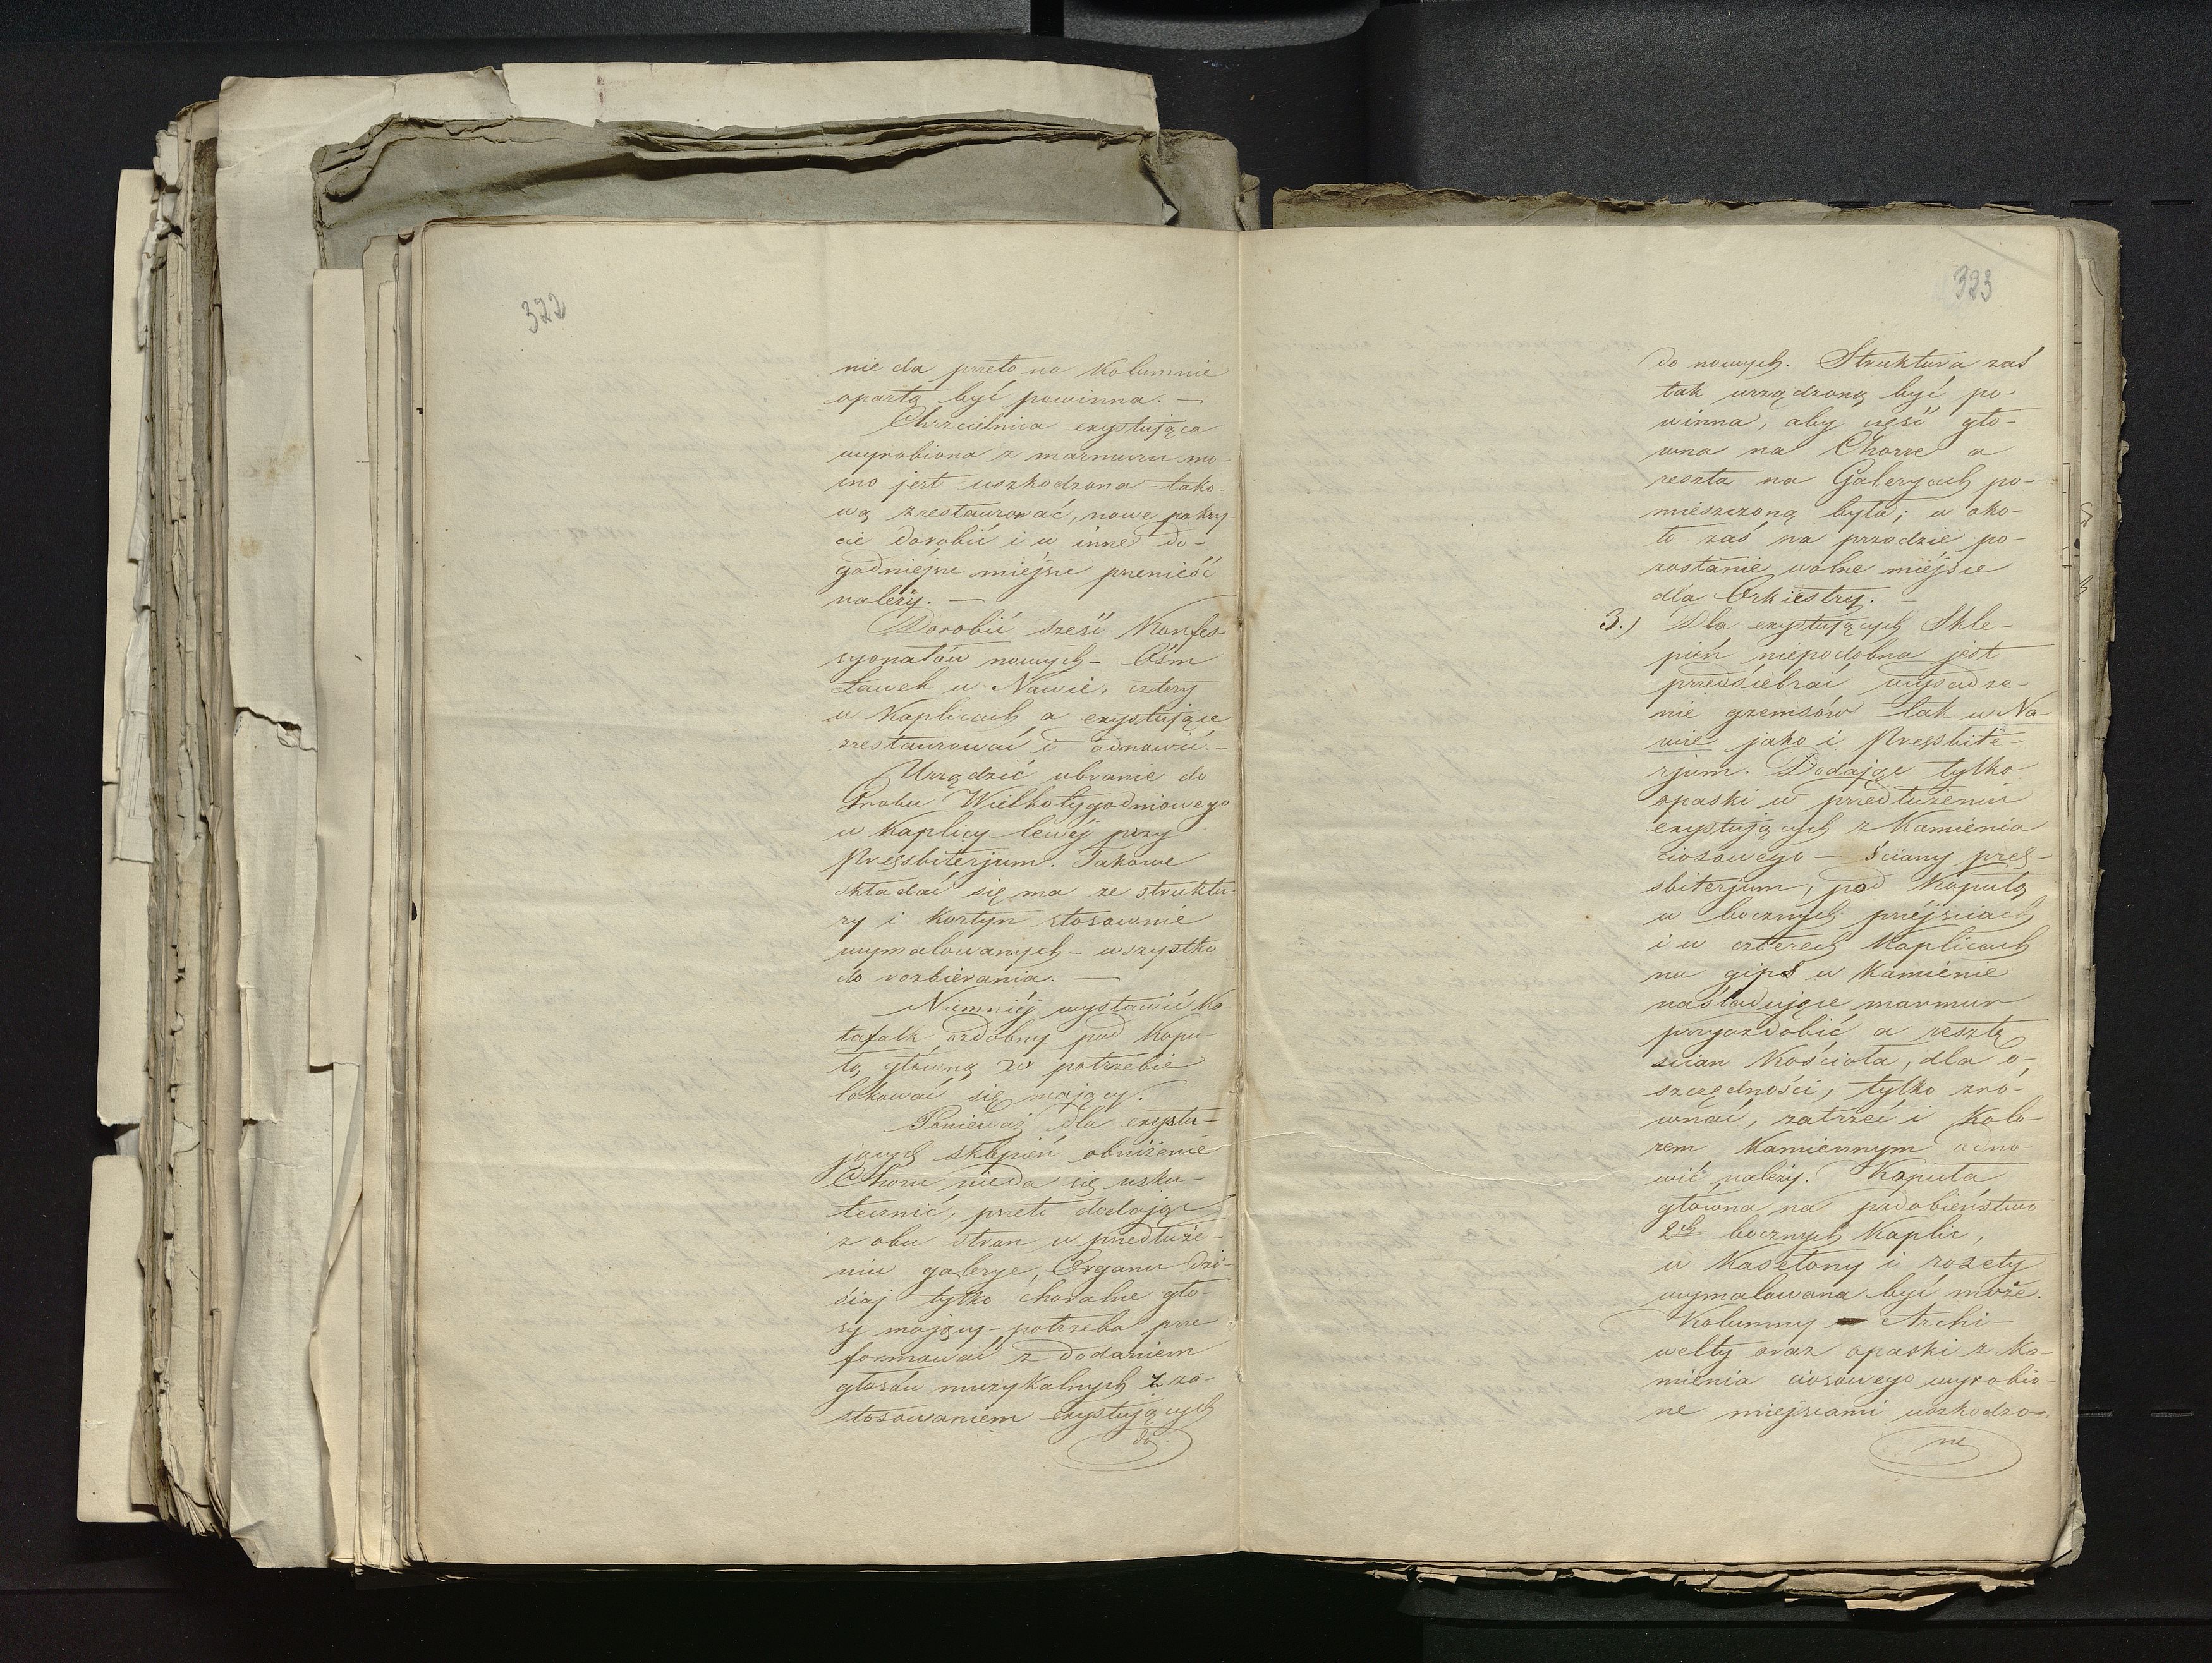 322
nie da przeto na Kolumnie
opartą być powinna. —
Chrzcielnica exystująca
wyrobiona z marmuru mo-
cno jest uszkodzona – tako-
wą zrestaurować, nowe pokry-
cie dorobić i w inne do-
godniejsze miejsce przenieść
należy. —
Dorobić sześć Konfes-
syonałów nowych – Ośm
Ławek w Nawie, cztery
w Kaplicach a exystujące
zrestaurować i odnowić. –
Urządzić ubranie do
Grobu Wielkotygodniowego
w Kaplicy lewéj przy
Pressbiterjum. Takowe
składać się ma ze struktu-
ry i Kortyn stosownie
wymalowanych – wszystko
do rozbierania. —
Niemniéj wystawić Ka-
tafalk ozdobny pod Kopu-
łą główną w potrzebie
lokować się mający.
Ponieważ dla exystu-
jących sklepień obniżenie
Choru nieda się usku-
tecznić, przeto dodając
z obu stron w przedłuże-
niu galerye, Organu dzi-
siaj tylko choralne gło-
sy mający – potrzeba prze
formować z dodaniem
głosów muzykalnych z za-
stosowaniem exystujących
do
323
do nowych. Struktura zaś
tak urządzoną być po-
winna, aby część głó-
wna na Chorze a
reszta na Galeryach po-
mieszczoną była; w oko-
ło zaś na przodzie po-
zostanie wolne miejsce
dla Orkiestry. –
3.) Dla exystujących Skle-
pień niepodobna jest
przedsiebrać wysadze-
nie gzemsów tak w Na-
wie jako i Pressbite-
rjum. Dodając tylko
opaski w przedłużeniu
exystujących z Kamienia
ciosowego – ściany pres-
sbiterjum, pod Kopułą
w bocznych przejściach
i w czterech Kaplicach
na gips w Kamienie
naśladujące marmur
przyozdobić a resztę
ścian Kościoła, dla o-
szczędności, tylko zró-
wnać, zatrzeć i Kolo-
rem Kamiennym odno-
wić należy. Kopuła
główna na podobieństwo
2ch bocznych Kaplic,
w Kasetony i rozety
wymalowana być może.
Kolumny – Archi-
welty oraz opaski z Ka-
mienia ciosowego wyrobio-
ne miejscami uszkodzo-
ne